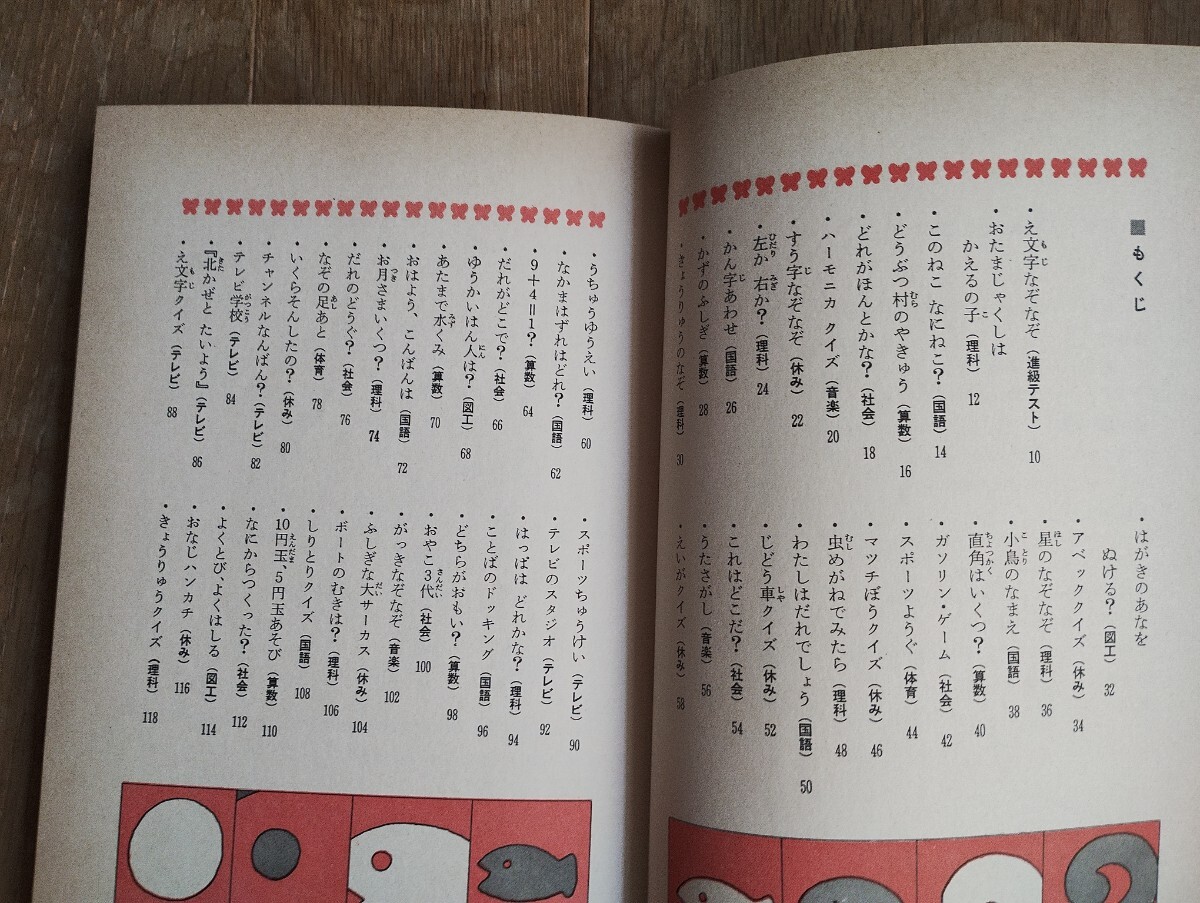 ■もくじ
・え文字なぞなぞ（進級テスト）10
・おたまじゃくしは
かえるの子（理科）12
・このねこ なにねこ？（国語）14
・どうぶつ村のやきゅう（算数）16
・どれがほんとかな？（社会）18
・ハーモニカ クイズ（音楽）20
・すう字なぞなぞ（休み）22
・左か 右か？（理科）24
・かん字あわせ（国語）26
・かずのふしぎ（算数）28
・きょうりゅうのなぞ（理科）30
・はがきのあなを
ぬける？（図工）32
・アベッククイズ（休み）34
・星のなぞなぞ（理科）36
・小鳥のなまえ（国語）38
・直角はいくつ？（算数）40
・ガソリン・ゲーム（社会）42
・スポーツようぐ（体育）44
・マッチぼうクイズ（休み）46
・虫めがねでみたら（理科）48
・わたしはだれでしょう（国語）50
・じどう車クイズ（休み）52
・これはどこだ？（社会）54
・うたさがし（音楽）56
・えいがクイズ（休み）58
・うちゅうゆうえい（理科）60
・なかまはずれはどれ？（国語）62
・9＋4＝1？（算数）64
・だれがどこで？（社会）66
・ゆうかいはん人は？（図工）68
・あたまで水くみ（算数）70
・おはよう、こんばんは（国語）72
・お月さまいくつ？（理科）74
・だれのどうぐ？（社会）76
・なぞの足あと（体育）78
・いくらそんしたの？（休み）80
・チャンネルなんばん？（テレビ）82
・テレビ学校（テレビ）84
・『北かぜと たいよう』（テレビ）86
・え文字クイズ（テレビ）88
・スポーツちゅうけい（テレビ）90
・テレビのスタジオ（テレビ）92
・はっぱは どれかな？（理科）94
・ことばのドッキング（国語）96
・どちらがおもい？（算数）98
・おやこ3代（社会）100
・がっきなぞなぞ（音楽）102
・ふしぎな大サーカス（休み）104
・ボートのむきは？（理科）106
・しりとりクイズ（国語）108
・10円玉、5円玉あそび（算数）110
・なにからつくった？（社会）112
・よくとび、よくはしる（図工）114
・おなじハンカチ（休み）116
・きょうりゅうクイズ（理科）118